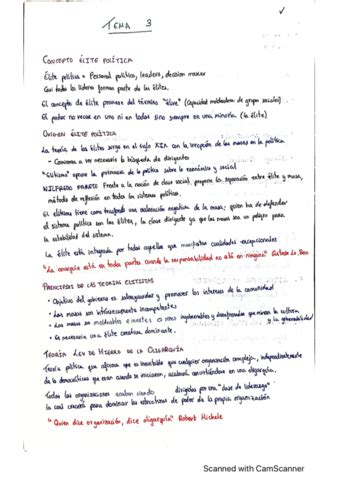 TEMA 3
CONCEPTO ÉLITE POLÍTICA
Élite política = Personal político, leaders, decision maker
Casi todos los líderes forman parte de las élites.
El concepto de élite proviene del término "élire" (Capacidad moldeadora de grupos sociales)
El poder no recae en uno ni en todos sino siempre en una minoría (la élite)
ORIGEN ÉLITE POLÍTICA
La teoría de las élites surge en el siglo XIX con la irrupción de las masas en la política
- Comienza a ser necesario la búsqueda de dirigentes
"Elitismo" opone la primacía de la política sobre lo económico y social
WILFREDO PARETO Frente a la noción de clase social, propone la separación entre élite y masa,
método de reflexión en todos los sistemas políticos.
El elitismo tiene como trasfondo una valoración negativa de la masa; quien ha de defender
el sistema político son las élites, la clase dirigente ya que las masas son un peligro para
la estabilidad del sistema.
La élite está integrada por todos aquellos que manifiestan cualidades excepcionales
"La anarquía está en todas partes cuando la responsabilidad no está en ninguna" Gustave le Bon
PRINCIPIOS DE LAS TEORÍAS ELITISTAS
• Objetivo del gobierno es salvaguardar y promover los intereses de la comunidad
• Las masas son intrínsecamente incompetentes
• Las masas son moldeables e inertes o seres ingobernables y desenfrenados que minan la cultura y la
• Es necesaria una élite creativa dominante.
TEORÍA LEY DE HIERRO DE LA OLIGARQUÍA
Teoría política que afirma que es inevitable que cualquier organización compleja, independientemente
de lo democráticas que sean cuando se iniciaron, acabará convirtiéndose en una oligarquía.
Todas las organizaciones acaban siendo dirigidas por una "clase de liderazgo"
la cual crecerá para dominar las estructuras de poder de la propia organización
"Quien dice organización, dice oligarquía" Robert Michels
Scanned with CamScanner